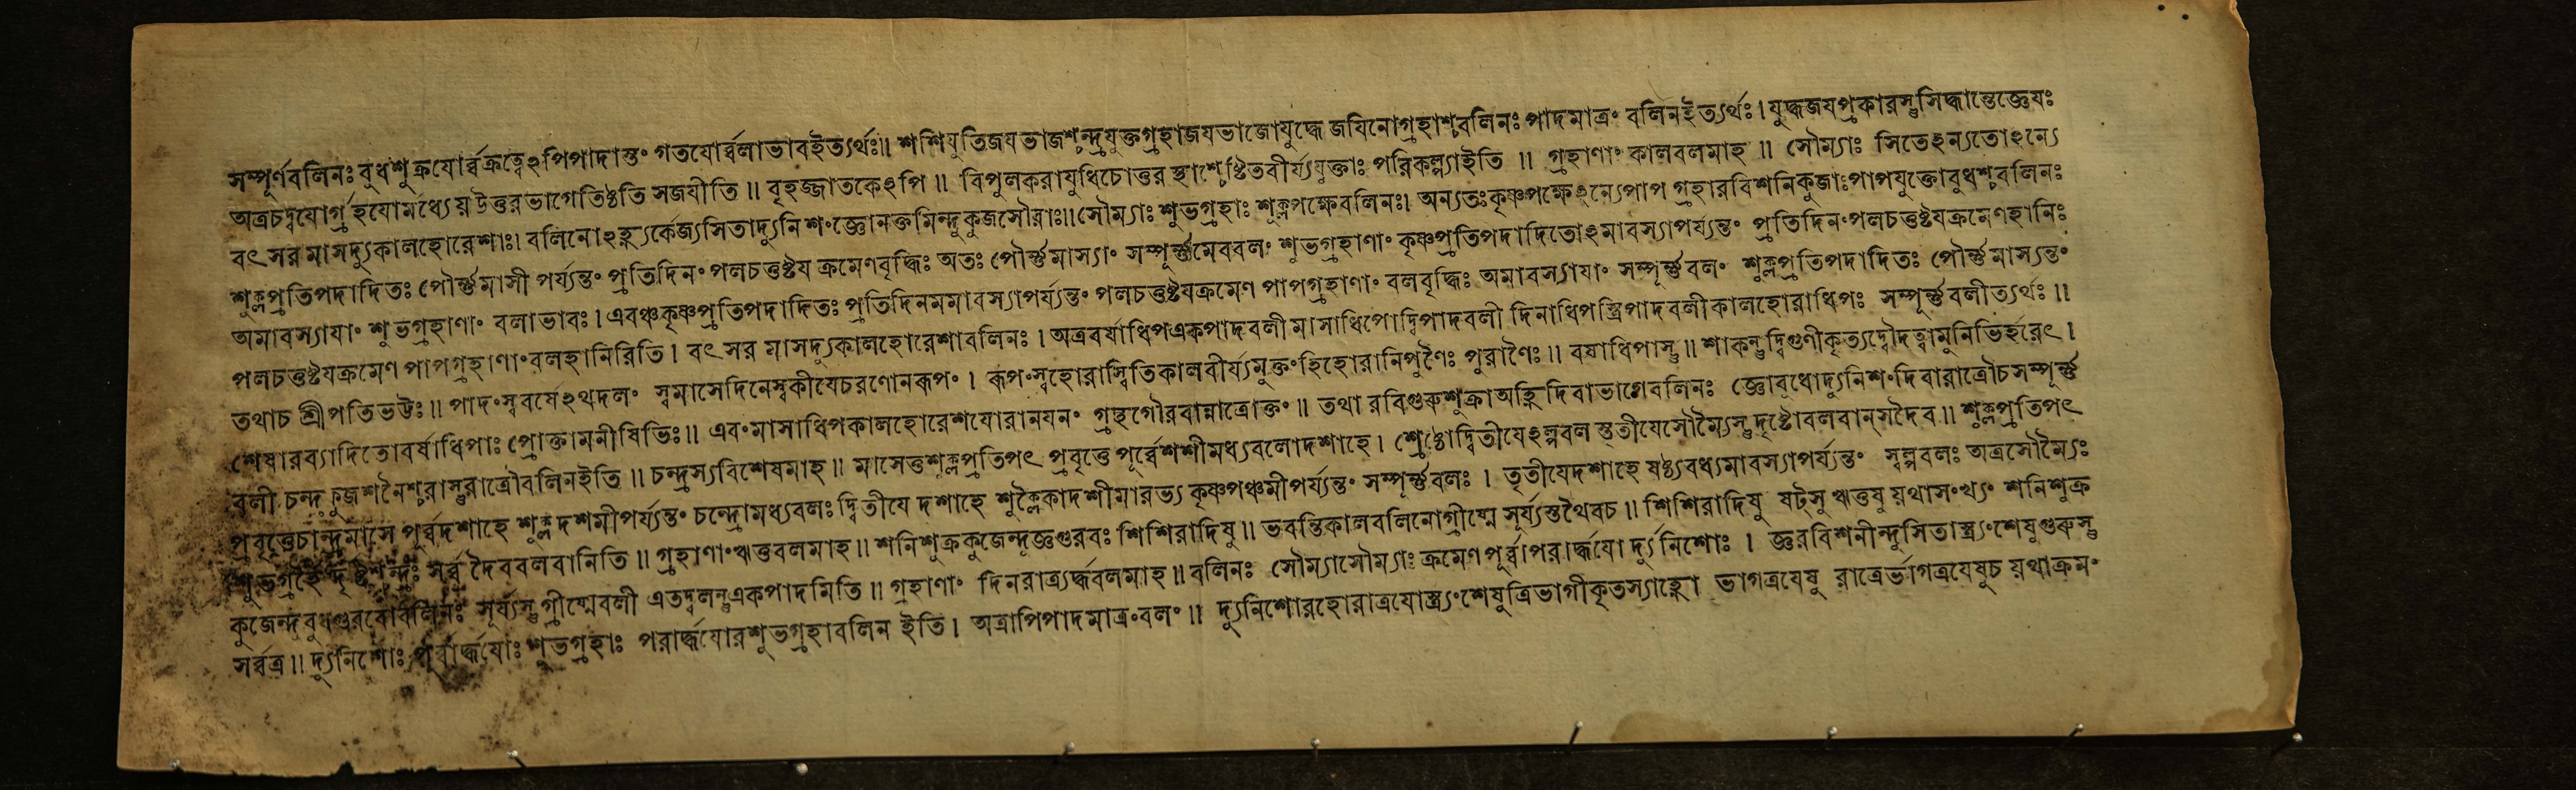 সম্পূর্ণবলিনঃ বুধশুক্রযোর্ব্বক্রত্বেঽপিপাদান্তং গতযোর্ব্বলাভাবইত্যর্থঃ॥ শশিযুতিজযভাজশ্চন্দ্রযুক্তগ্রহাজযভাজোযুদ্ধে জযিনোগ্রহাশ্চবলিনঃ পাদমাত্রং বলিনইত্যর্থঃ। যুদ্ধজযপ্রকারস্তুসিদ্ধান্তেজ্ঞেযঃ
অত্রচদ্বযোর্গ্রহযোর্মধ্যেয়উত্তরভাগেতিষ্ঠতি সজযীতি॥ বৃহজ্জাতকেঽপি॥ বিপুলকরাযুধিচোত্তরস্থাশ্চেষ্টিতবীর্য্যযুক্তাঃ পরিকল্প্যাইতি॥ গ্রহাণাং কালবলমাহ॥ সৌম্যাঃ সিতেঽন্যতোঽন্যে
বৎসরমাসদ্যুকালহোরেশাঃ। বলিনোঽহ্ন্যর্কেজ্যসিতাদ্যুনিশংজ্ঞোনক্তমিন্দুকুজসৌরাঃ॥ সৌম্যাঃ শুভগ্রহাঃ শুক্লপক্ষেবলিনঃ। অন্যতঃকৃষ্ণপক্ষেঽন্যেপাপগ্রহারবিশনিকুজাঃপাপযুক্তোবুধশ্চবলিনঃ
শুক্লপ্রতিপদাদিতঃ পৌর্ন্নমাসী পর্য্যন্তং প্রতিদিনং পলচত্তুষ্টয ক্রমেণবৃদ্ধিঃ অতঃ পৌর্ন্নমাস্যাং সম্পূর্ন্নমেববলং শুভগ্রহাণাং কৃষ্ণপ্রতিপদাদিতোঽমাবস্যাপর্য্যন্তং প্রতিদিনংপলচত্তুষ্টযক্রমেণহানিঃ
অমাবস্যাযাং শুভগ্রহাণাং বলাভাবঃ। এবঞ্চকৃষ্ণপ্রতিপদাদিতঃ প্রতিদিনমমাবস্যাপর্য্যন্তং পলচত্তুষ্টযক্রমেণ পাপগ্রহাণাং বলবৃদ্ধিঃ অমাবস্যাযাং সম্পূর্ন্নবলং শুক্লপ্রতিপদাদিতঃ পৌর্ন্নমাস্যন্তং
পলচত্তুষ্টযক্রমেণ পাপগ্রহাণাংবলহানিরিতি। বৎসর মাসদ্যুকালহোরেশাবলিনঃ। অত্রবর্যাধিপএকপাদবলী মাসাধিপোদ্বিপাদবলী দিনাধিপস্ত্রিপাদবলীকালহোরাধিপঃ সম্পূর্ন্নবলীত্যর্থঃ॥
তথাচ শ্রীপতিভট্টঃ॥ পাদংস্ববর্ষেঽথদলং স্বমাসেদিনেস্বকীযেচরণোনরূপং। রূপংস্বহোরাস্বিতিকালবীর্য্যমুক্তংহিহোরানিপুণৈঃ পুরাণৈঃ॥ বর্ষাধিপাস্তু॥ শাকন্তুদ্বিগুণীকৃত্যদ্বৌদত্বামুনিভির্হরেৎ।
শেষারব্যাদিতোবর্ষাধিপাঃ প্রোক্তামনীষিভিঃ॥ এবংমাসাধিপকালহোরেশযোরানযনং গ্রন্থগৌরবান্নাত্রোক্তং॥ তথা রবিগুরুশুক্রাঅহ্নি দিবাভাগেবলিনঃ জ্ঞোবুধোদ্যুনিশংদিবারাত্রৌচসম্পূর্ন্ন
বলী চন্দ্রকুজশনৈশ্চরাস্তুরাত্রৌবলিনইতি॥ চন্দ্রস্যবিশেষমাহ॥ মাসেত্তশুক্লপ্রতিপৎ প্রবৃত্তে পূর্ব্বেশশীমধ্যবলোদশাহে। শ্রেষ্ঠোদ্বিতীযেঽল্পবলস্তৃতীযেসৌম্যৈস্তুদৃষ্টোবলবান্সদৈব॥ শুক্লপ্রতিপৎ
প্রবৃত্তেচান্দ্রমাসে পূর্ব্বদশাহে শুক্লদশমীপর্য্যন্তং চন্দ্রোমধ্যবলঃ দ্বিতীযে দশাহে শুক্লৈকাদশীমারভ্য কৃষ্ণপঞ্চমীপর্য্যন্তং সম্পূর্ন্নবলঃ। তৃতীযেদশাহে ষষ্ঠ্যবধ্যমাবস্যাপর্য্যন্তং স্বল্পবলঃ অত্রসৌম্যৈঃ
শুভগ্রহৈর্দৃষ্টশ্চন্দ্রঃ সর্ব্ব দৈববলবানিতি॥ গ্রহাণাংঋত্তবলমাহ॥ শনিশুক্রকুজেন্দুজ্ঞগুরবঃ শিশিরাদিষু॥ ভবন্তিকালবলিনোগ্রীষ্মে সূর্য্যস্তথৈবচ॥ শিশিরাদিষু ষট্সু ঋত্তষু য়থাসংখ্যং শনিশুক্র
কুজেন্দুবুধগুরবোবলিনঃ সূর্য্যস্তুগ্রীষ্মেবলী এতদ্বলন্তুএকপাদমিতি॥ গ্রহাণাং দিনরাত্র্যর্দ্ধবলমাহ॥ বলিনঃ সৌম্যাসৌম্যাঃ ক্রমেণপূর্ব্বাপরার্দ্ধযো র্দ্যুনিশোঃ। জ্ঞরবিশনীন্দুসিতাস্ত্র্যংশেষুগুরুস্তু
সর্ব্বত্র॥ দ্যুনিশোঃ পূর্বার্দ্ধযোঃ শুভগ্রহাঃ পরার্দ্ধযোরশুভগ্রহাবলিন ইতি। অত্রাপিপাদমাত্রংবলং॥ দ্যুনিশোরহোরাত্রযোস্ত্র্যংশেষুত্রিভাগীকৃতস্যাহ্নো ভাগত্রযেষু রাত্রের্ভাগত্রযেষুচ য়থাক্রমং